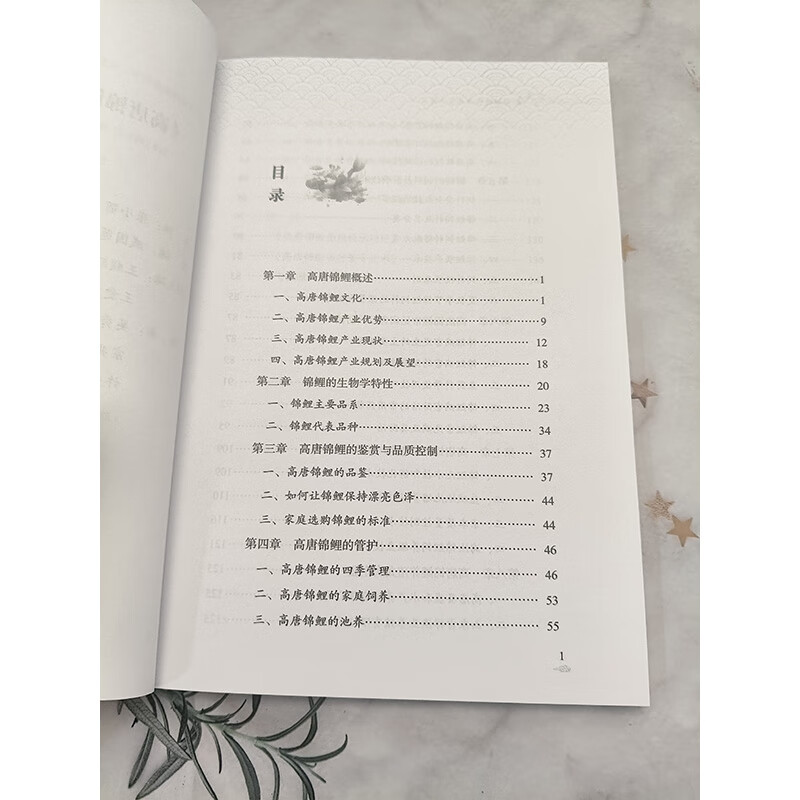 高唐锦
目录
第一章 高唐锦鲤概述 1
一、高唐锦鲤文化 1
二、高唐锦鲤产业优势 9
三、高唐锦鲤产业现状 12
四、高唐锦鲤产业规划及展望 18
第二章 锦鲤的生物学特性 20
一、锦鲤主要品系 23
二、锦鲤代表品种 34
第三章 高唐锦鲤的鉴赏与品质控制 37
一、高唐锦鲤的品鉴 37
二、如何让锦鲤保持漂亮色泽 44
三、家庭选购锦鲤的标准 44
第四章 高唐锦鲤的管护 46
一、高唐锦鲤的四季管理 46
二、高唐锦鲤的家庭饲养 53
三、高唐锦鲤的池养 55
1